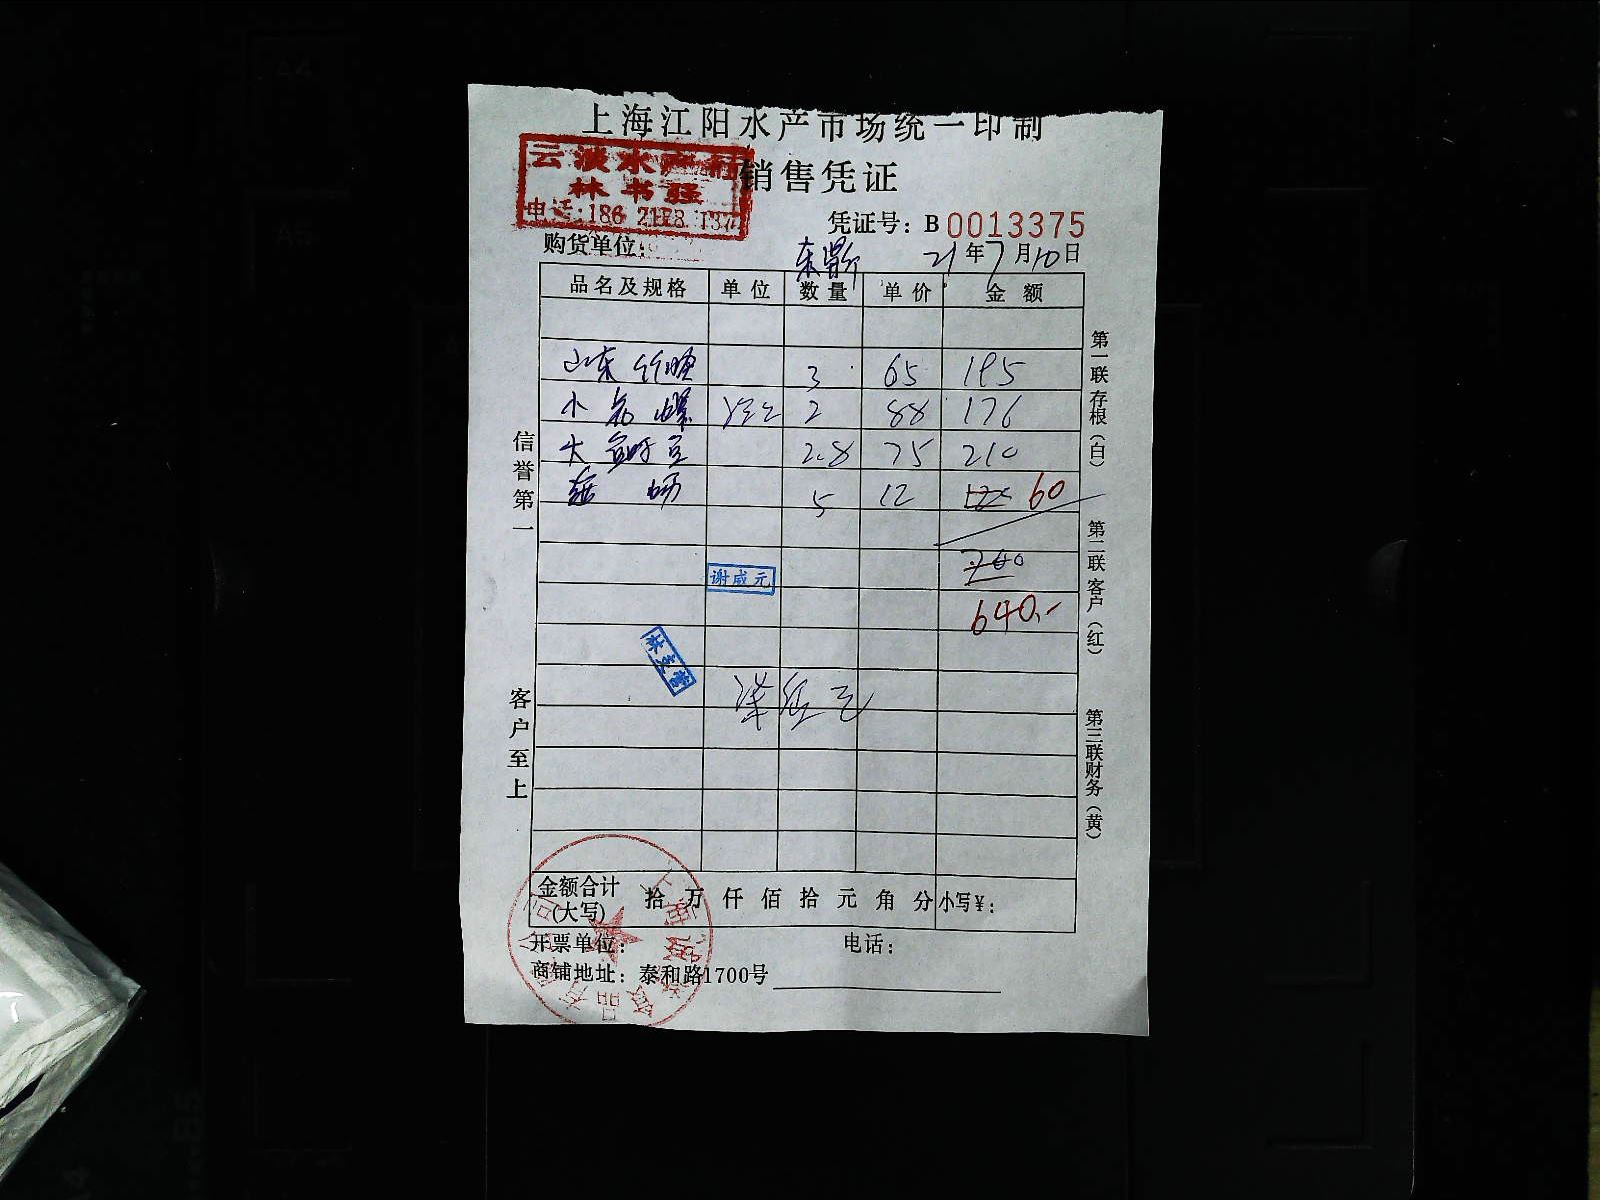 上海江阳水产市场统一印制
销售凭证
林书强
电话:186
凭证号: B 0013375
购货单位:
东
21年7月10日
品名及规格 单位 数量 单价 金额
山东 3 65 195
小 螺 2 88 176
大 2.8 75 210
5 12 60
700
640.-
谢咸元
信誉第一
客户至上
第一联存根(白)
第二联客户(红)
第三联财务(黄)
金额合计(大写) 拾 万 仟 佰 拾 元 角 分 小写¥:
开票单位: 电话:
商铺地址: 泰和路1700号